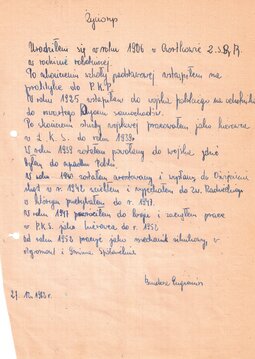 Życiorys
Urodziłem się w roku 1906 w Rostkowie Z.S.R.R.
w rodzinie robotniczej.
Po ukończeniu szkoły podstawowej wstąpiłem na
praktykę do P.K.P.
W roku 1925 wstąpiłem do wojska polskiego na ochotnika
do
Po ukończeniu służby wojskowej pracowałem jako kierowca
w Z.K.S. do roku 1938.
W roku 1939 zostałem powołany do wojska gdzie
byłem do upadku Polski
W roku 1940 zostałem aresztowany i wysłany do
skąd w r. 1942 i wyjechałem do Zw. Radzieckiego
w którym przebywałem do r. 1947.
W roku 1947 powróciłem do kraju i zacząłem pracę
w P.K.S. jako kierowca do r. 1953
od roku 1953 pracuję jako mechanik
i Gminna Spółdzielnia
Eugeniusz